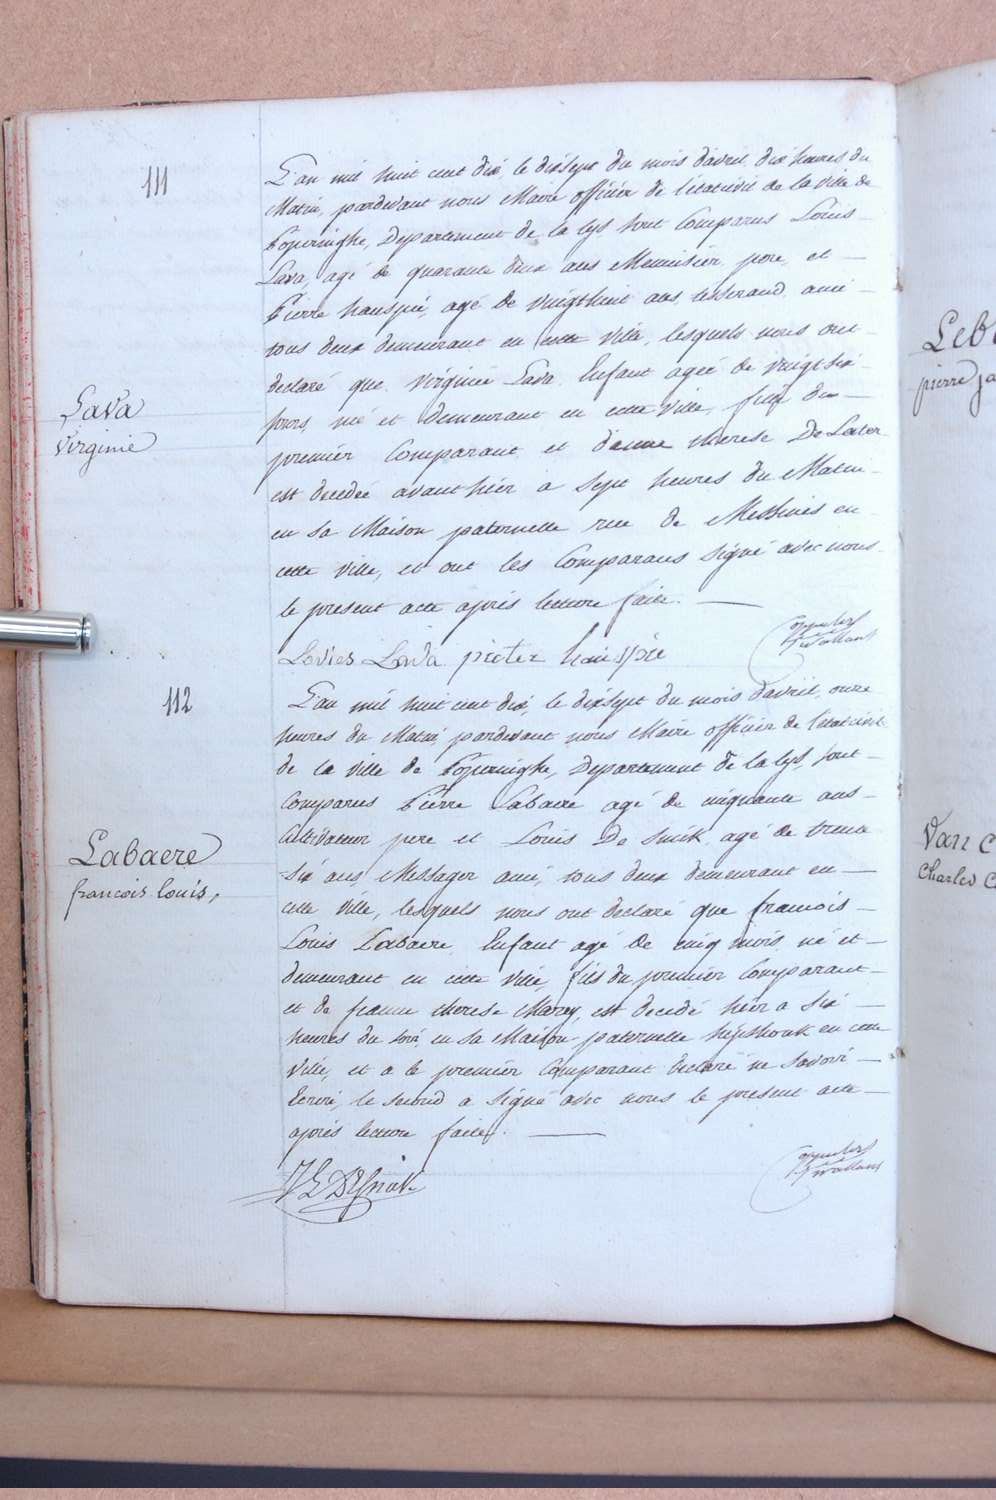 111
L'an mil huit cent dix, le dixsept du mois d'avril, dix heures du
Matin, pardevant nous Maire officier de l'etatcivil de la ville de
Poperinghe, Departement de la lys sont Comparus Louis
Lava, agé de quarante deux ans Menuisier, pere, et
Pierre hauspié, agé de vingthuit ans, tisserand, ami
tous deux demeurant en cette ville, lesquels nous ont
declaré que Virginie Lava Enfant agée de vingt six
Lava
Virginie
jours, né et demeurant en cette ville, fille du
premier Comparant et d'anne therese De Later
est decedée avanthier a sept heures du Matin
en sa Maison paternelle rue de Messines en
cette ville, et ont les Comparans signé avec nous
le present acte après lecture faite.
Lovies Lava pieter hauspie
112
L'an mil huit cent dix, le dixsept du mois d'avril, onze
heures du Matin, pardevant nous Maire officier de l'etatcivil
de la ville de Poperinghe, Departement de la lys, sont
Comparus Pierre Labaere agé de cinquante ans
Cultivateur pere et Louis De Snick agé de trente
Labaere
francois louis,
six ans, Messager ami, tous deux demeurant en
cette ville, lesquels nous ont declaré que francois
Louis Labaere Enfant agé de cinq mois, né et
demeurant en cette ville, fils du premier Comparant
et de therese Marey, est decedé hier a six
heures du soir, en sa Maison paternelle en cette
Ville, et a le premier Comparant Declaré ne Savoir
Ecrire, le second a signé avec nous le present acte
après lecture faite.
Leb
pierre ja
Van C
Charles C